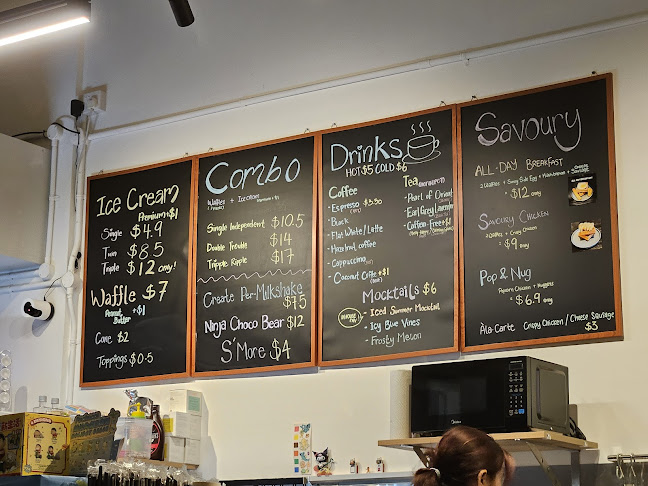 Ice Cream
Premium+$1
Single $4.9
Twin $8.5
Triple $12 only!
Waffle $7
Peanut Butter +$1
Cone $2
Toppings $0.5
Combo
Waffles + Ice Cream
Premium + $1
Single Independent $10.5
Double Trouble $14
Tripple Ripple $17
Create Per-Milkshake $7.5
Ninja Choco Bear $12
S'More $4
Drinks
HOT $5 COLD $6
Coffee
- Espresso $3.50
- Black
- Flat White / Latte
- Hazelnut coffee
- Cappuccino
- Coconut Coffee +$1
Tea
- Pearl of Orient
- Earl Grey Lavender
- Caffeine-Free +$1
Mocktails $6
- Iced Summer Mocktail
- Icy Blue Vines
- Frosty Melon
Savoury
ALL-DAY BREAKFAST
2 Waffles + Sunny Side Egg + Hashbrown + Cheese Sausage
- $12 only
Savoury Chicken
2 Waffles + Crispy Chicken
- $9 only
Pop & Nug
Popcorn Chicken + Nuggets
- $6.9 only
Ala-Carte Crispy Chicken / Cheese Sausage
$3
Midea